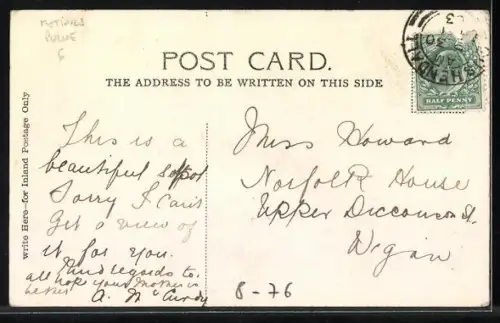 POST CARD.
THE ADDRESS TO BE WRITTEN ON THIS SIDE
HALF PENNY
write Here—for Inland Postage Only
This is a
beautiful spot
Sorry I can't
get a view of
it for you.
Kind regards to
all hope your Mother is
better
A. McCurdy
Miss Howard
Norfolk House
Upper Dicconson St.
Wigan
8-76